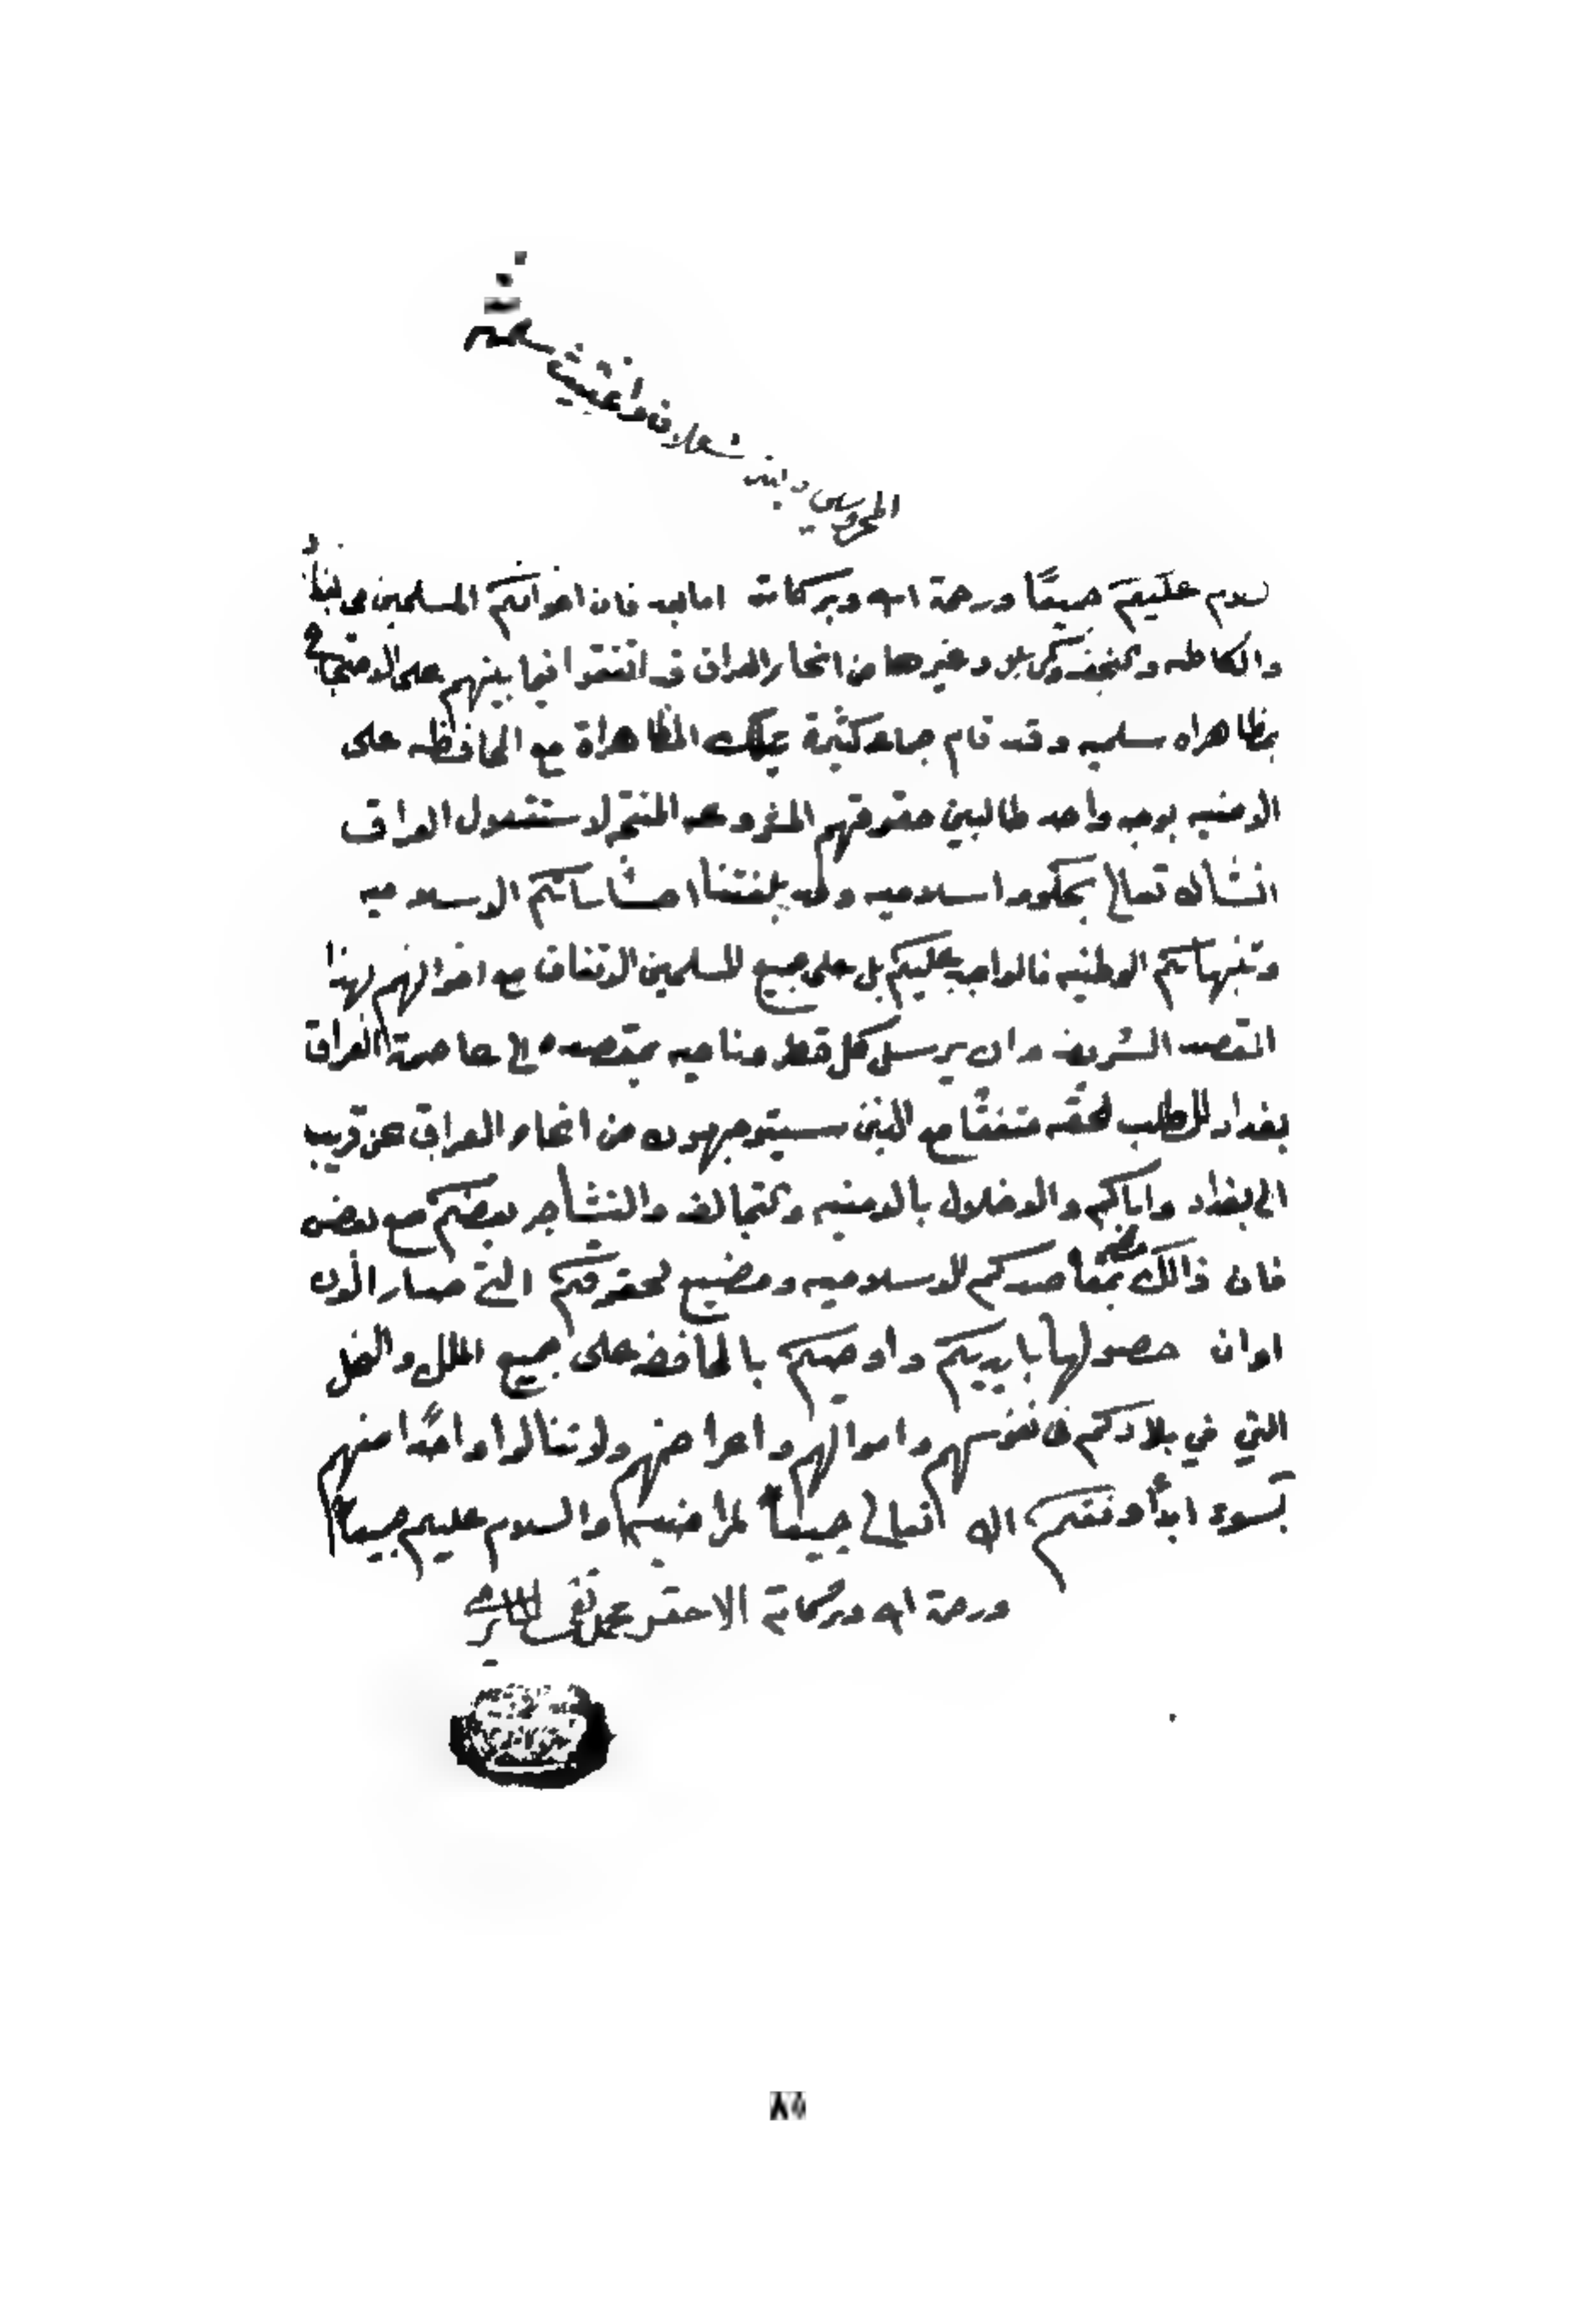 سلام عليكم جميعًا ورحمة الله وبركاته اما بعد فان اخوانكم المسلمين في بغداد
والكاظمه والنجف وكربلا وغيرها من انحاء العراق قد اتفقوا فيما بينهم على الاجتماع في
بمظاهراه سلميه وقد قام جماعه كثيرة بتلك المظاهراة مع المحافظه على
الامنيه بوجه واحد طالبين حقوقهم المشروعه المنتجه لاستقلال العراق
انشاالله تعالى بحكومه اسلاميه وقد بلغتنا احساساتكم الاسلاميه
وتنبهاتكم الوطنيه فالواجب عليكم بل على جميع المسلمين الاتفاق مع اخوانهم بهذا
المقصد الشريف وان يرسل كل قطر وناحيه بمقصده الى عاصمة العراق
بغداد للطلب لحقه متفقًا مع الذين سيتوجهون من انحاء العراق عن قريب
الى بغداد واياكم والاخلال بالامنيه والتخالف والتشاجر بعضكم مع بعض
فان ذالك مضر بمقاصدكم الاسلاميه ومضيع لحقوقكم التي صار الأن
اوان حصولها بايديكم واوصيكم بالمحافظه على جميع الملل والنحل
التي في بلادكم في نفوسهم واموالهم واعراضهم ولا تنالوا واحدًا منهم
بسوء ابدًا وفقكم الله تعالى جميعًا لمراضيه والسلام عليكم جميعًا
ورحمة الله وبركاته الاحقر محمد تقي الحائري